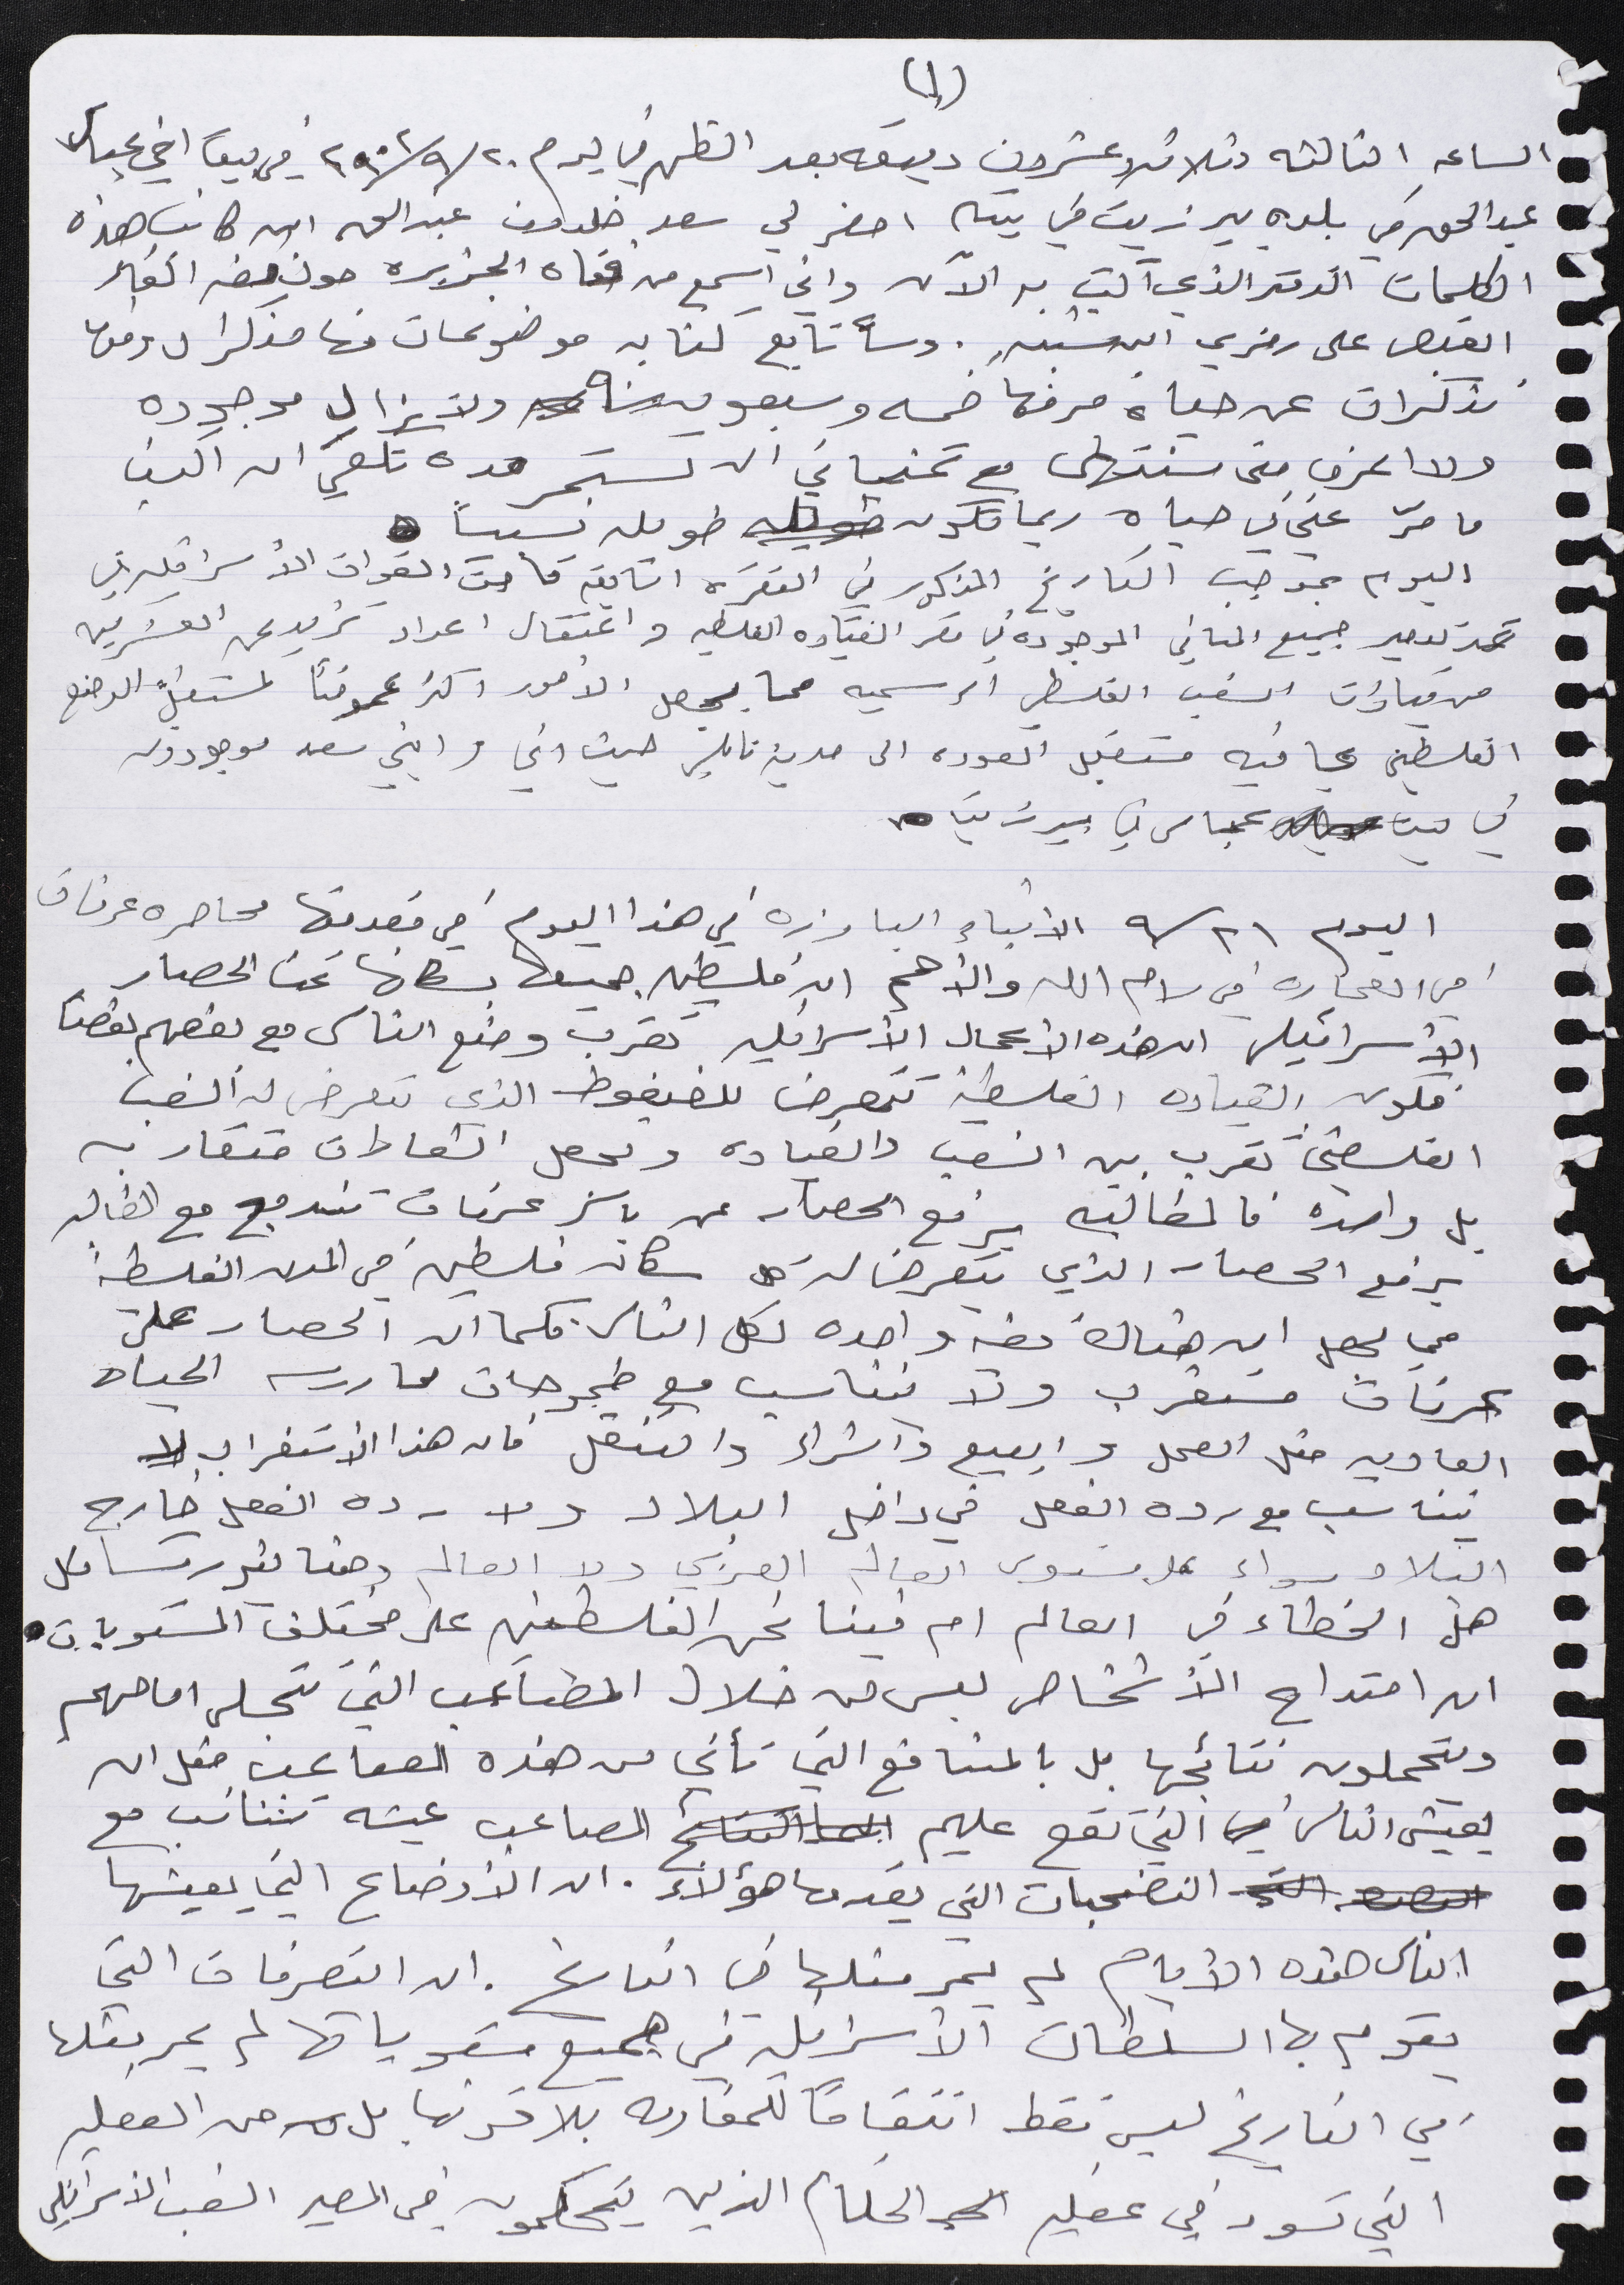 (١)
الساعه الثالثه وثلاثه وعشرون دقيقه بعد الظهر في يوم ٢٠/٩/٢٠٠٢ في بيت اخي عباس
عبد الحق في بلده بير زيت في بيته احضر لي سعد خلدون عبد الحق ابن كاتب هذه
الكلمات الدفتر الذي اكتب به الآن واني اسمع من قناه الجزيره حول قصه القاء
القبض على رمزي ابن شيبه. وسأتابع كتابه موضوعات منها مذكرات ومنها
تذكرات عن حياة مر منها خمسه وسبعون عاما ولا يزال موجوده
ولا اعرف متى ستنتهي مع تمنياتي ان تستمر مده تكفي ان اكتب
ما مرّ علي في حياه ربما تكون طويله نسبياً
اليوم بموجب التاريخ المذكور في الفقره السابقه قامت القوات الأسرائيليه في
تدمير جميع المباني الموجوده في مقر القياده الفلسطينيه واعتقال اعداد تزيد عن العشرين
من قيادات الشعب الفلسطيني الرسميه مما يجعل الأمور اكثر غموضاً لمستقبل الوضع
الفلسطيني بما فيه مستقبل العوده الى مدينة نابلس حيث اني وابني سعد موجودون
في بيت عباس في بير زيت
اليوم ٢١/٩ الأنباء البارزه في هذا اليوم في مقدمتها محاصره عرفات
في العماره في رام الله والأهم ان فلسطين جميعها بسكانها تحت الحصار
الأسرائيلي ان هذه الأعمال الأسرائيليه تقرب وضع الناس مع بعضهم بعضاً
فكون القياده الفلسطينية تتعرض للضغوط الذي يتعرض له الشعب
الفلسطيني تقرب بين الشعب والقياده وتجعل الشعارات متقاربه
بل واحده فالمطالبه برفع الحصار عن ياسر عرفات تندمج مع المطالبه
برفع الحصار الذي يتعرض له سكان فلسطين في المدن الفلسطينية
مما يجعل ان هناك قضيه واحده لكل الناس. فكما ان الحصار على
عرفات مستغرب ولا يتناسب مع طموحات ممارسه الحياه
العاديه مثل العمل والبيع والشراء والتنقل فان هذا الأستغراب لا
يتناسب مع رده الفعل في داخل البلاد ولا رده الفعل خارج
البلاد سواء على مستوى العالم العربي ولا العالم وهنا يثور تساءل
هل الخطاء في العالم ام فينا نحن الفلسطينين على مختلف المستويات
ان امتداح الأشخاص ليس من خلال المصاعب التي تتجلى امامهم
ويتحملون نتائجها بل بالمنافع التي تأتي من هذه المصاعب مثل ان
يعيش الناس التي تقع عليهم المصاعب عيشه تتناسب مع
التضحيات التي يقدمها هؤلاء. ان الأوضاع التي يعيشها
الناس هذه الأيام لم يمر مثلها في التاريخ. ان التصرفات التي
يقوم بها السلطات الأسرائيليه في جميع مستوياتها لم يمر مثلها
في التاريخ ليس فقط انتقاماً للمقارنه بلا قرنها بل من العقليه
التي تسود في عقليه الحكام الذين يتحكمون في المصير الشعب الأسرائيلي